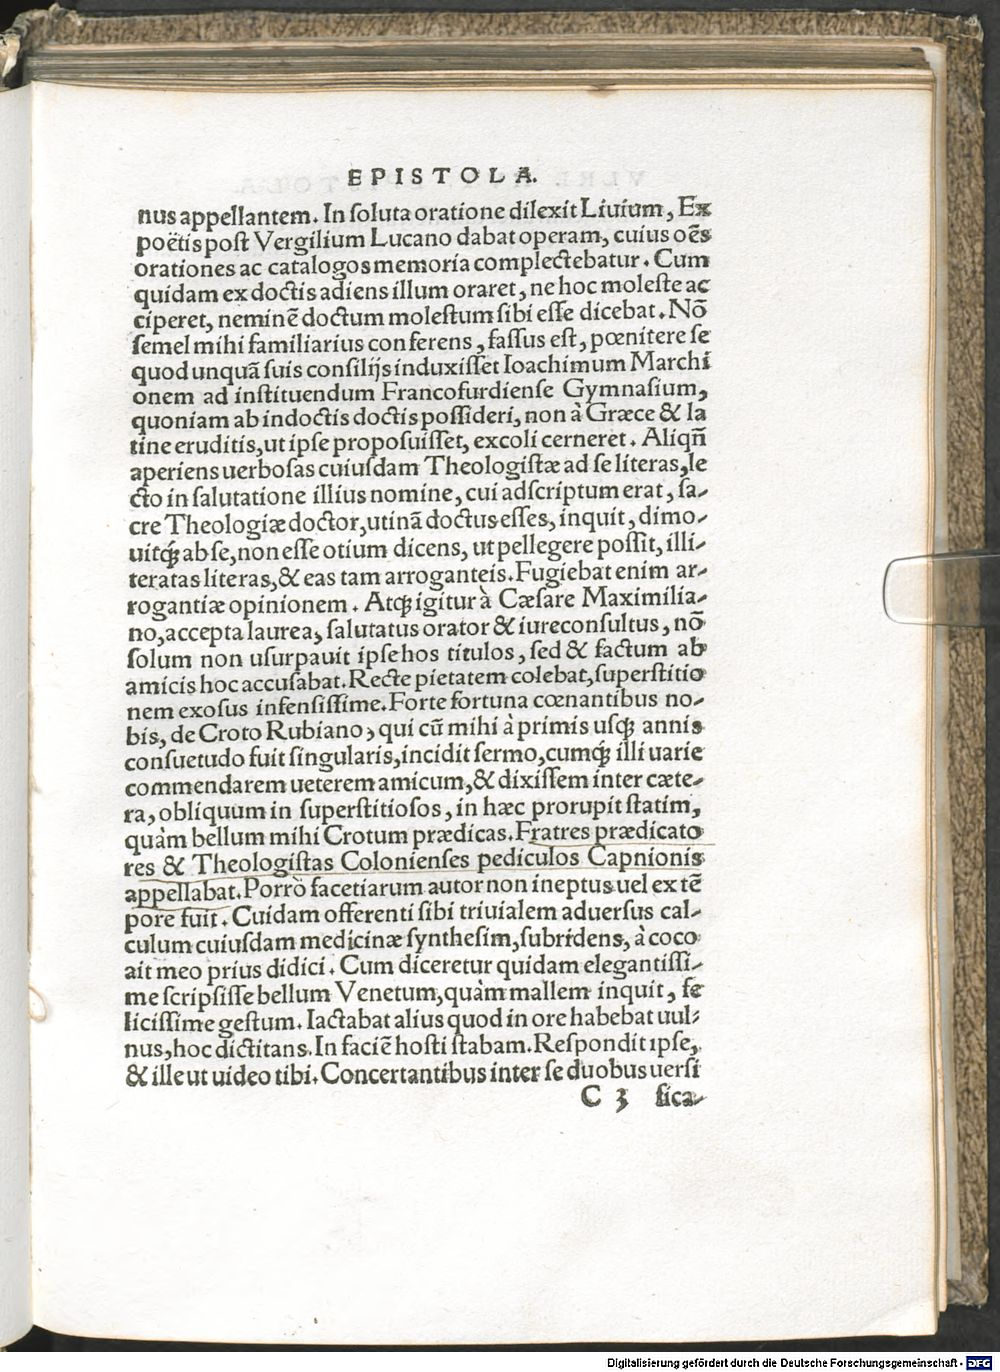 EPISTOLA.
nus appellantem. In soluta oratione dilexit Liuium, Ex
poëtis post Vergilium Lucano dabat operam, cuius oẽs
orationes ac catalogos memoria complectebatur. Cum
quidam ex doctis adiens illum oraret, ne hoc moleste ac
ciperet, neminẽ doctum molestum sibi esse dicebat. Nõ
semel mihi familiarius conferens, fassus est, pœnitere se
quod unquã suis consilijs induxisset Ioachimum Marchi
onem ad instituendum Francofurdiense Gymnasium,
quoniam ab indoctis doctis possideri, non à Græce & la
tine eruditis, ut ipse proposuisset, excoli cerneret. Aliqñ
aperiens uerbosas cuiusdam Theologistæ ad se literas, le
cto in salutatione illius nomine, cui adscriptum erat, sa-
cre Theologiæ doctor, utinã doctus esses, inquit, dimo-
uitq́; ab se, non esse otium dicens, ut pellegere possit, illi-
teratas literas, & eas tam arroganteis. Fugiebat enim ar-
rogantiæ opinionem. Atq; igitur à Cæsare Maximilia-
no, accepta laurea, salutatus orator & iureconsultus, nõ
solum non usurpauit ipse hos titulos, sed & factum ab
amicis hoc accusabat. Recte pietatem colebat, superstitio
nem exosus infensissime. Forte fortuna cœnantibus no-
bis, de Croto Rubiano, qui cũ mihi à primis usq; annis
consuetudo fuit singularis, incidit sermo, cumq́; illi uarie
commendarem ueterem amicum, & dixissem inter cæte-
ra, obliquum in superstitiosos, in hæc prorupit statim,
quàm bellum mihi Crotum prædicas. Fratres prædicato
res & Theologistas Colonienses pediculos Capnionis
appellabat. Porrò facetiarum autor non ineptus uel ex tẽ
pore fuit. Cuidam offerenti sibi triuialem aduersus cal-
culum cuiusdam medicinæ synthesim, subridens, à coco
ait meo prius didici. Cum diceretur quidam elegantissi-
me scripsisse bellum Venetum, quàm mallem inquit, fe
licissime gestum. Iactabat alius quod in ore habebat uul-
nus, hoc dictitans. In faciẽ hosti stabam. Respondit ipse,
& ille ut uideo tibi. Concertantibus inter se duobus uersi
C 3 fica-
Digitalisierung gefördert durch die Deutsche Forschungsgemeinschaft - DFG